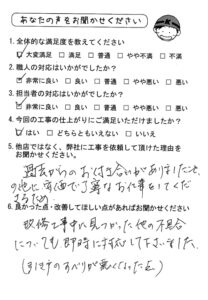 あなたの声をお聞かせください
1. 全体的な満足度を教えてください
☑大変満足 □満足 □普通 □やや不満 □不満
2. 職人の対応はいかがでしたか?
☑非常に良い □良い □普通 □やや悪い □悪い
3. 担当者の対応はいかがでしたか?
☑非常に良い □良い □普通 □やや悪い □悪い
4. 今回の工事の仕上がりにご満足いただけましたか?
☑はい □どちらともいえない □いいえ
5. 他店ではなく、弊社に工事を依頼して頂けた理由を
お聞かせください。
過去からのお付き合いがありましたこと、
の他に安価で丁寧なお仕事をしてくだ
さるため
6. 良かった点・改善してほしい点があればお聞かせください
改修工事中に見つかった他の不具合
についても即時に対応して下さいました。
のすべりが悪くなった点)